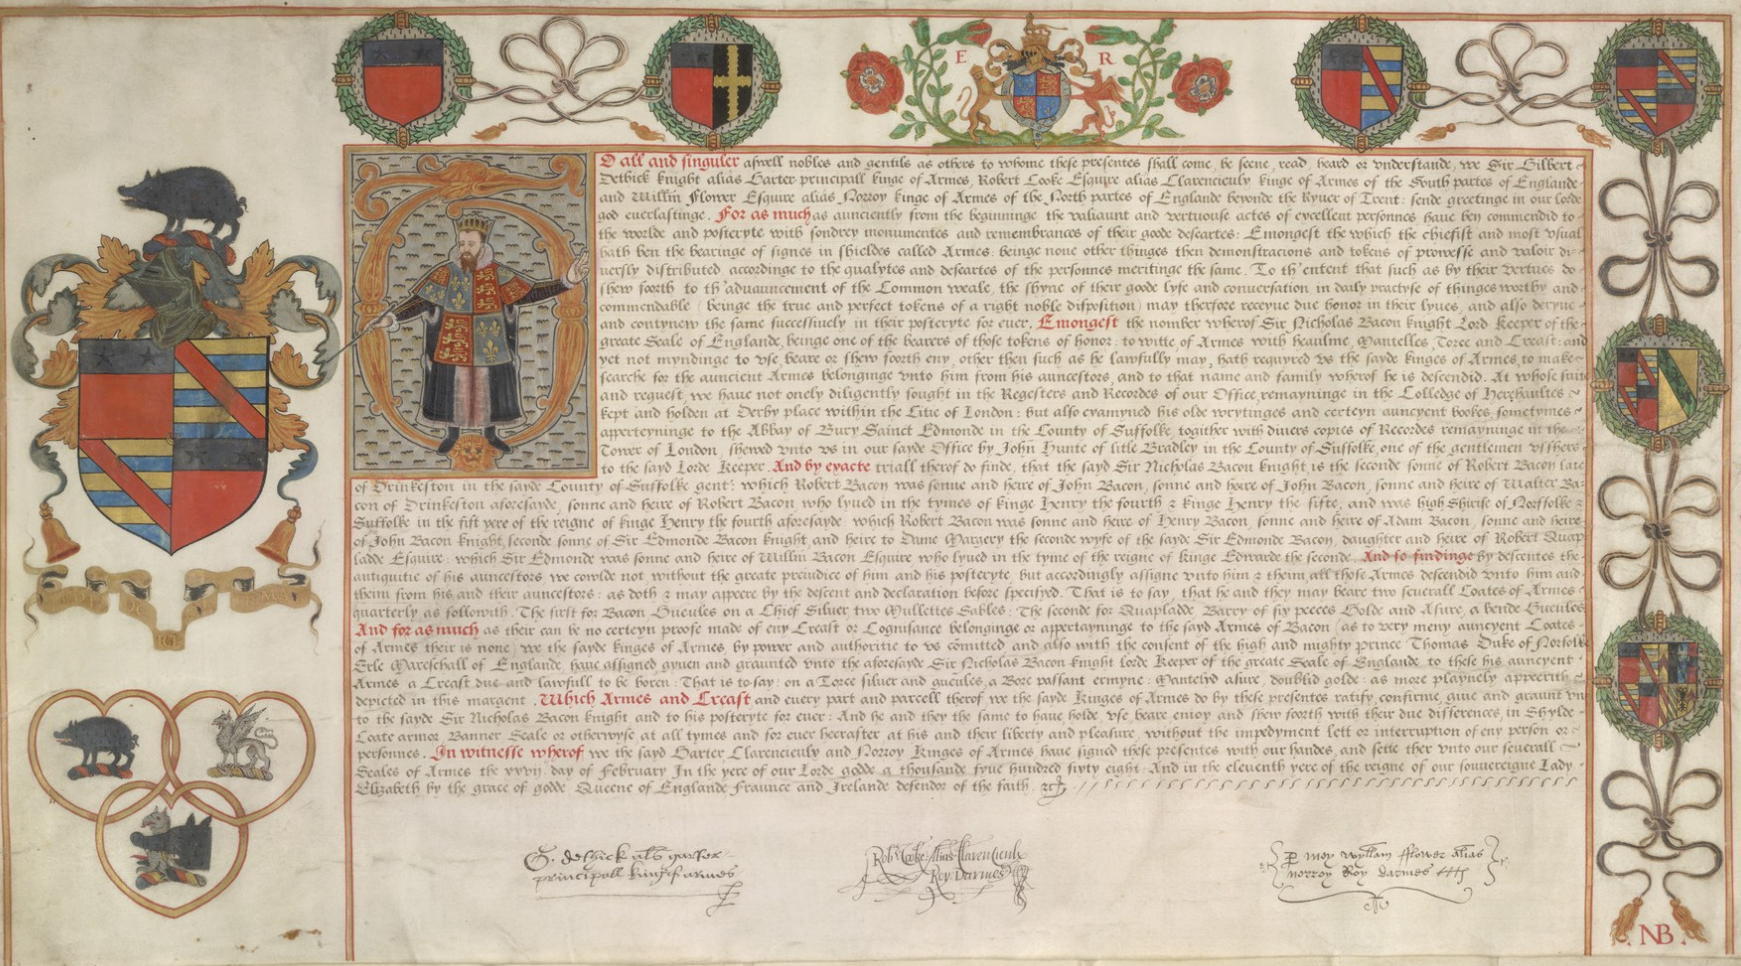 E R
O all and singuler aswell nobles and gentils as others to whome these presentes shall come, be seene, read, heard or vnderstande, we Sir Gilbert
Dethick knight alias Garter principall kinge of Armes, Robert Cooke Esquyre alias Clarencieulx kinge of Armes of the South partes of Englande
and Willm Flower Esquyre alias Norroy kinge of Armes of the North partes of Englande beyonde the Ryuer of Trent: sende greetinge in our lorde
god euerlastinge. For as much as aunciently from the begynninge the valiaunt and vertuouse actes of excellent personnes haue ben commendid to
the worlde and posteryte with sondrey monumentes and remembrances of their goode deseartes: Emongest the which the chiefist and most vsual
hath ben the bearinge of signes in shieldes called Armes: beinge none other thinges then demonstracions and tokens of prowesse and valoir di-
uersly distributed accordinge to the qualytes and deseartes of the personnes meritinge the same. To th'entent that such as by their vertues do
shew foorth to th'aduauncement of the Common weale, the shyne of their goode lyfe and conversation in daily practyse of thinges worthy and
commendable (beinge the true and perfect tokens of a right noble disposition) may therfore receyue due honor in their lyues, and also deryue
and contynew the same successiuely in their posteryte for euer. Emongest the nomber wherof Sir Nicholas Bacon knight Lord Keeper of the
greate Seale of Englande, beinge one of the bearers of those tokens of honor: to witte of Armes with heaulme, Mantelles, Torce and Creast: and
yet not myndinge to vse, beare or shew foorth eny, other then such as he lawfully may, hath requyred vs the sayde kinges of Armes, to make
searche for the auncient Armes belonginge vnto him from his auncestors, and to that name and family wherof he is descendid. At whose suite
and request, we haue not onely diligently sought in the Regesters and Recordes of our Office, remayninge in the Colledge of Herehaultes
kept and holden at Derby place within the Citie of London: but also examyned his olde wrytinges and certeyn auncyent bookes, sometymes
apperteyninge to the Abbay of Bury Sainct Edmonde in the County of Suffolke, togither with divers copies of Recordes remayninge in the
Tower of London, shewed vnto vs in our sayde Office by John Hunte of litle Bradley in the County of Suffolke, one of the gentlemen vsshers
to the sayd Lorde Keeper. And by exacte triall therof do finde, that the sayd Sir Nicholas Bacon knight, is the seconde sonne of Robert Bacon late
of Drinkeston in the sayde County of Suffolke gent: which Robert Bacon was sonne and heire of John Bacon, sonne and heire of John Bacon, sonne and heire of Walter Ba-
con of Drinkeston aforesayde, sonne and heire of Robert Bacon who lyued in the tymes of kinge Henry the fourth & kinge Henry the fifte, and was high Shirife of Norffolke &
Suffolke in the fift yere of the reigne of kinge Henry the fourth aforesayde: which Robert Bacon was sonne and heire of Henry Bacon, sonne and heire of Adam Bacon, sonne and heire
of John Bacon knight, seconde sonne of Sir Edmonde Bacon knight, and heire to Dame Margery the seconde wyfe of the sayde Sir Edmonde Bacon, daughter and heire of Robert Quap
ladde Esquire: which Sir Edmonde was sonne and heire of Willm Bacon Esquire who lyued in the tyme of the reigne of kinge Edwarde the seconde. And so findinge by descentes the
antiquitie of his auncestors, we cowlde not, without the greate preiudice of him and his posteryte, but accordingly assigne vnto him & them, all those Armes descendid vnto him and
them from his and their auncestors: as doth & may appeere by the descent and declaration before specifyed. That is to say, that he and they may beare two seuerall Coates of Armes
quarterly as followith. The first for Bacon Gueules on a Chief Siluer, two Mullettes Sables: The seconde for Quapladde, Barry of six peeces Golde and Asure, a bende Gueules
And for as much as their can be no certeyn proofe made of eny Creast or Cognisance belonginge or appertayninge to the sayd Armes of Bacon (as to very meny auncyent Coates
of Armes their is none) we the sayde kinges of Armes, by power and authoritie to vs comitted and also with the consent of the high and mighty prince Thomas Duke of Norfolke
Erle Mareschall of Englande, haue assigned gyuen and graunted vnto the aforesayde Sir Nicholas Bacon knight lorde Keeper of the greate Seale of Englande, to these his auncyent
Armes a Creast due and lawfull to be boren: That is to say: on a Torce siluer and gueules, a Bore passant ermyne: Mantelid asure, doublid golde: as more playnely appeerith
depicted in this margent. Which Armes and Creast and euery part and parcell therof we the sayde Kinges of Armes do by these presentes ratify, confirme, giue and graunt vn
to the sayde Sir Nicholas Bacon knight and to his posteryte for euer: And he and they the same to haue holde, vse beare enioy and shew foorth with their due differences, in Shylde
Coate armor, Banner Seale or otherwyse at all tymes and for euer heerafter at his and their liberty and pleasure, without the impedyment lett or interruption of eny person or
personnes. In witnesse wherof we the sayd Garter, Clarencieulx and Norroy Kinges of Armes haue signed these presentes with our handes, and sette ther vnto our seuerall
Seales of Armes the xxvij day of February In the yere of our Lorde godde a thousande fyue hundred sixty eight: And in the eleuenth yere of the reigne of our souuereigne Lady
Elizabeth by the grace of godde Queene of Englande Fraunce and Irelande defendor of the faith. &c
G. dethick als garter
principall king of armes
Rob Cooke Alias Clarencieulx
Roy Darmes
P moy Wyllam fflower alias
norroy Roy darmes
NB